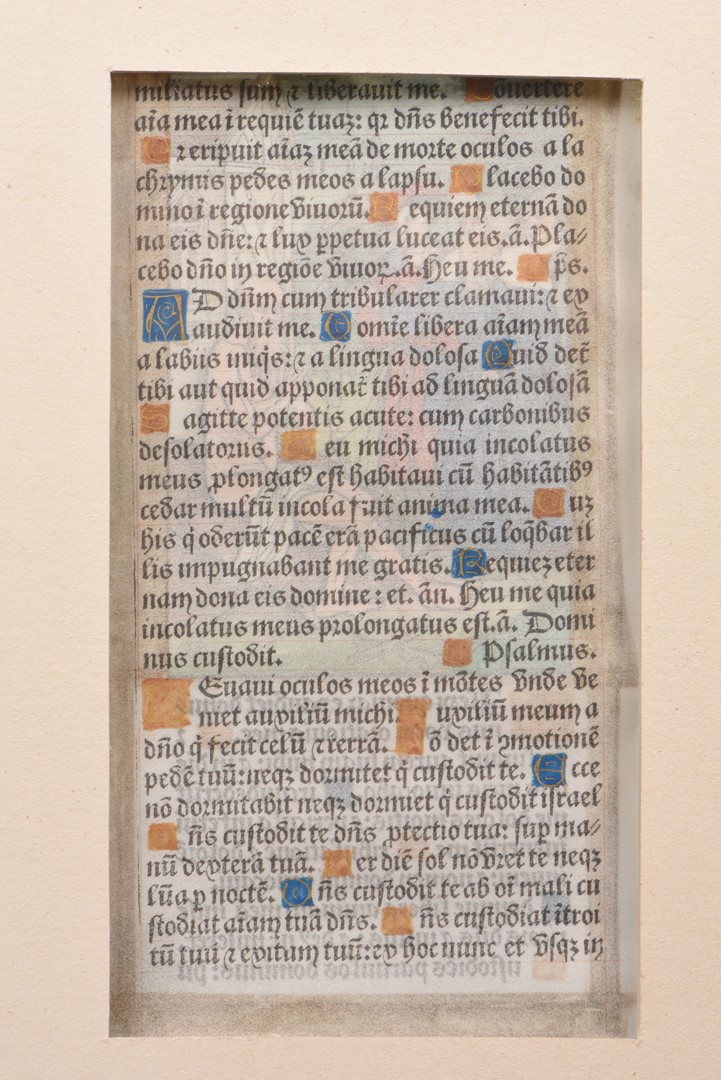 miliatus sum ⁊ liberauit me. Conuertere
aĩa mea ĩ requiẽ tuaꝫ: qꝛ dñs benefecit tibi.
E ꝛeripuit aĩaꝫ meã de morte oculos a la
chrymis pedes meos a lapsu. P lacebo do
mino ĩ regione viuorũ. R equiem eternã do
na eis dñe: ⁊ lux ꝑpetua luceat eis. ã. Pla⸗
cebo dño in regiõe viuoꝝ. ã. Heu me. p̃s.
A D dñm cum tribularer clamaui: ⁊ ex
audiuit me. D omĩe libera aĩam meã
a labiis iniq̃s: ⁊ a lingua dolosa Quid det̃
tibi aut quid apponat̃ tibi ad linguã dolosã
S agitte potentis acute: cum carbonibus
desolatoriis. H eu michi quia incolatus
meus ꝓlongatꝰ est habitaui cũ habitãtibꝰ
cedar multũ incola fuit anima mea. C uꝫ
his q̇ oderũt pacẽ erã pacificus cũ loq̃bar il
lis impugnabant me gratis. Requieꝫ eter
nam dona eis domine: et. ãn. Heu me quia
incolatus meus prolongatus est. ã. Domi
nus custodit. Psalmus.
L Euaui oculos meos ĩ mõtes vnde ve
niet auxiliũ michi. A uxiliũ meum a
dño q̇ fecit celũ ⁊ terrã. N õ det ĩ ꝯmotionẽ
pedẽ tuũ: neqꝫ dormitet q̇ custodit te. E cce
nõ dormitabit neqꝫ dormiet q̇ custodit israel
D ñs custodit te dñs ꝓtectio tua: suꝑ ma⸗
nũ dexterã tuã. P er diẽ sol nõ vret te neqꝫ
lũa ꝑ noctẽ. D ñs custodit te ab oĩ mali cu
stodiat aĩam tuã dñs. D ñs custodiat ĩtroi
tũ tuũ ⁊ exitum tuũ: ex hoc nunc et vsqꝫ in